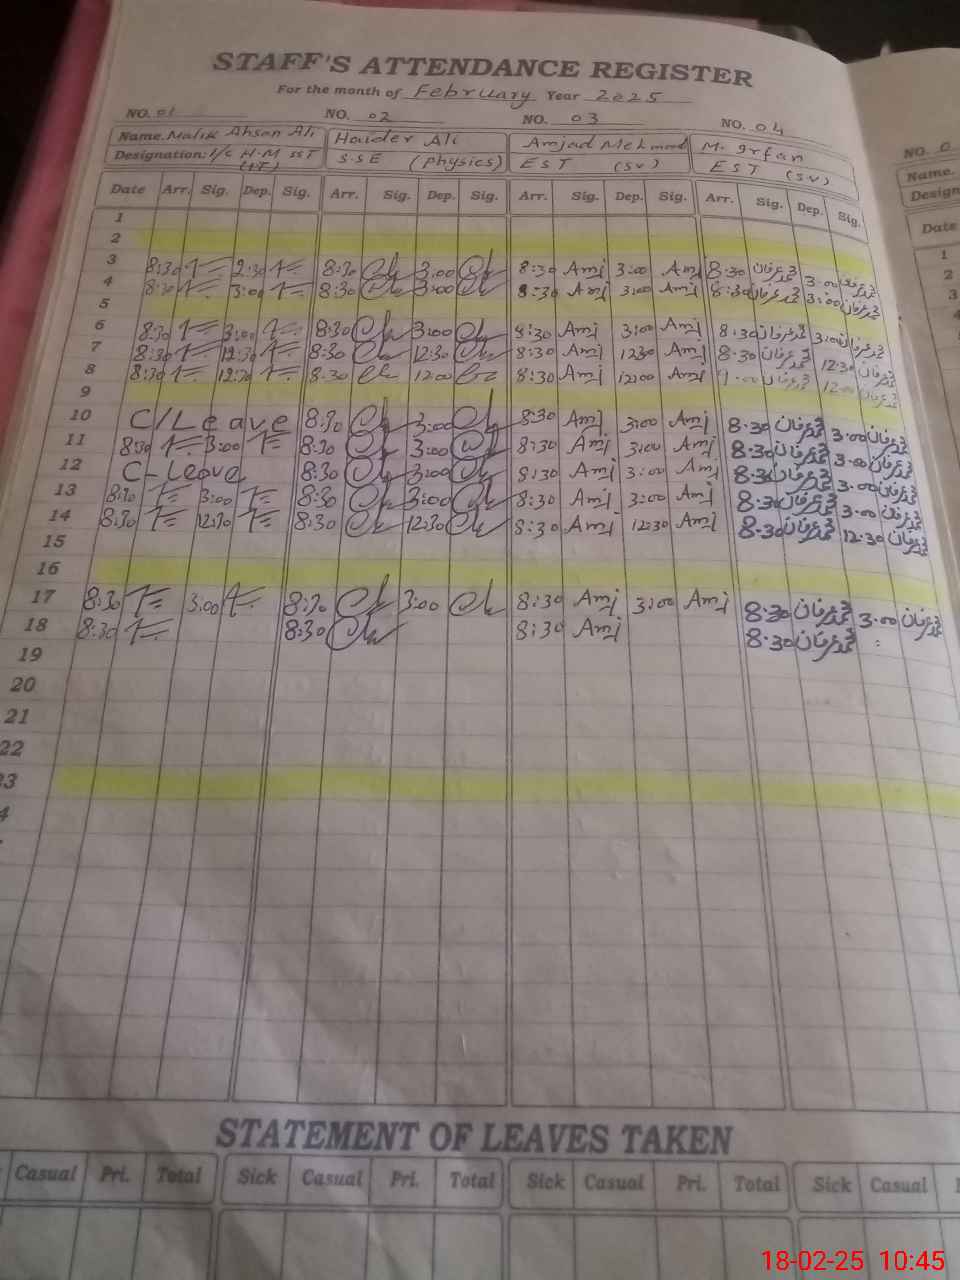 STAFF'S ATTENDANCE REGISTER
For the month of February Year 2025
NO. 01 NO. 02 NO. 03 NO. 04 NO. 0
Name. Malik Ahsan Ali Haider Ali Amjad Mehmood M. Irfan Name.
Designation: I/C H.M SST (IT) S.S.E (Physics) EST (SV) EST (SV) Design
Date Arr. Sig. Dep. Sig. Arr. Sig. Dep. Sig. Arr. Sig. Dep. Sig. Arr. Sig. Dep. Sig. Date
1 1
2 2
3 8:30 2:30 8:30 3:00 8:30 Amj 3:00 Amj 8:30 محمد عرفان 3:00 محمد عرفان 3
4 8:30 3:00 8:30 3:00 8:30 Amj 3:00 Amj 8:30 محمد عرفان 3:00 محمد عرفان 4
5
6 8:30 3:00 8:30 3:00 8:30 Amj 3:00 Amj 8:30 محمد عرفان 3:00 محمد عرفان
7 8:30 12:30 8:30 12:30 8:30 Amj 1230 Amj 8:30 محمد عرفان 12:30 محمد عرفان
8 8:30 12:30 8:30 12:00 8:30 Amj 12:00 Amj 9:00 محمد عرفان 12:00 محمد عرفان
9
10 C/Leave 8:30 3:00 8:30 Amj 3:00 Amj 8:30 محمد عرفان 3:00 محمد عرفان
11 8:30 3:00 8:30 3:00 8:30 Amj 3:00 Amj 8:30 محمد عرفان 3:00 محمد عرفان
12 C-Leave 8:30 3:00 8:30 Amj 3:00 Amj 8:30 محمد عرفان 3:00 محمد عرفان
13 8:30 3:00 8:30 3:00 8:30 Amj 3:00 Amj 8:30 محمد عرفان 3:00 محمد عرفان
14 8:30 12:30 8:30 12:30 8:30 Amj 12:30 Amj 8:30 محمد عرفان 12:30 محمد عرفان
15
16
17 8:30 3:00 8:30 3:00 8:30 Amj 3:00 Amj 8:30 محمد عرفان 3:00 محمد عرفان
18 8:30 8:30 8:30 Amj 8:30 محمد عرفان
19
20
21
22
3
4
STATEMENT OF LEAVES TAKEN
Casual Pri. Total Sick Casual Pri. Total Sick Casual Pri. Total Sick Casual
18-02-25 10:45